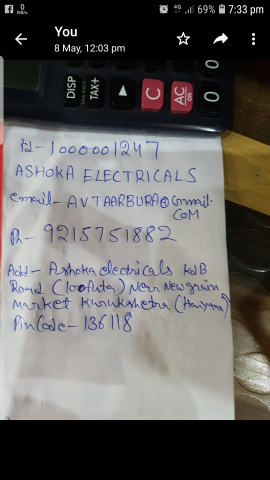 0
KB/s
4G
69%
7:33 pm
You
8 May, 12:03 pm
DISP
TAX+
C
AC
ON
0
0
id-1000001247
ASHOKA ELECTRICALS
email-AVTAARBURA@Gmail.
COM
Ph-9215751882
Add-Ashoka electricals KDB
Road (100futa) Near New grain
market Kurukshetra (Haryana)
Pin Code-136118